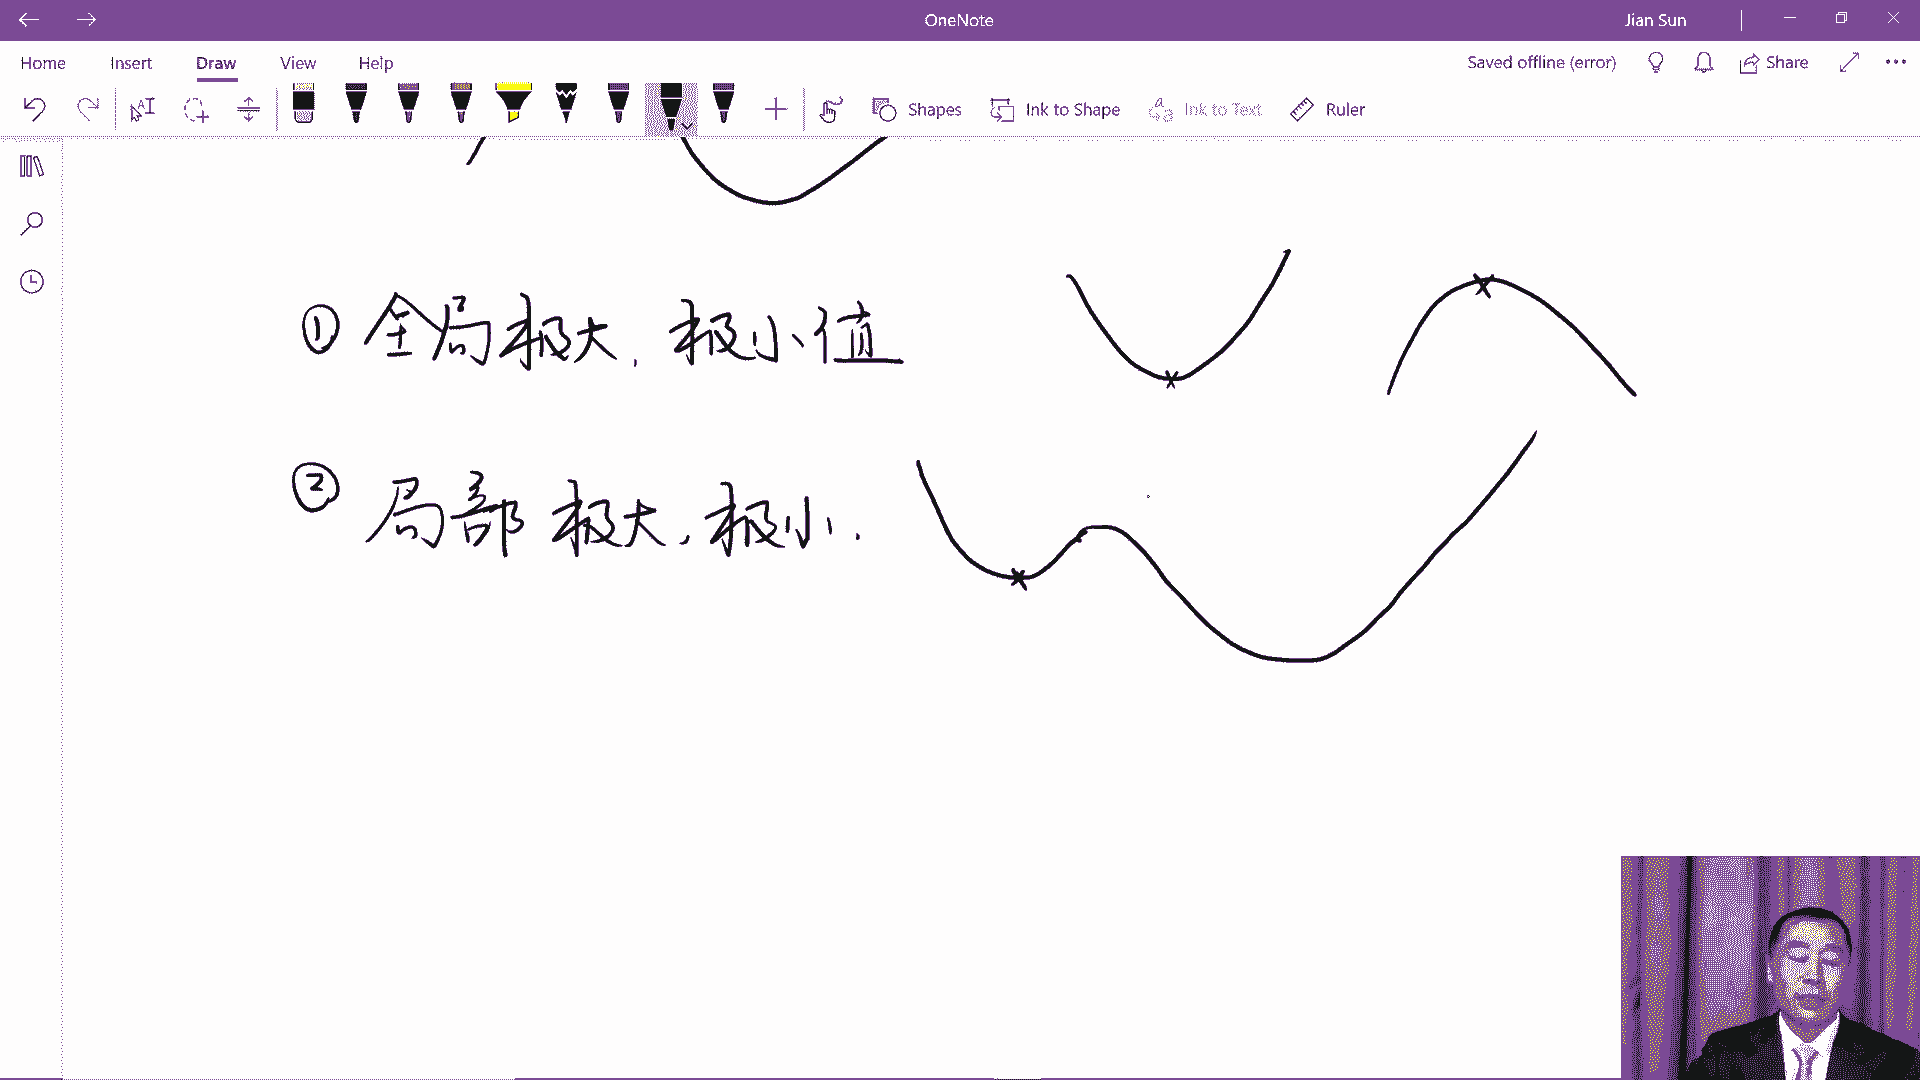 OneNote
Jian Sun
Home Insert Draw View Help
Saved offline (error)
Share
Shapes
Ink to Shape
Ink to Text
Ruler
① 全局极大, 极小值
② 局部极大, 极小.